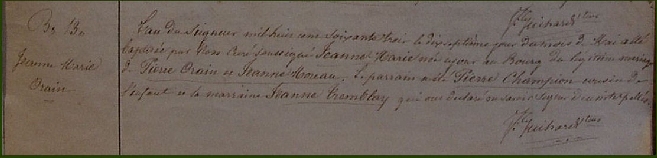 Jeanne Marie
Orain
L'an du Seigneur mil huit cent soixante trois le dix septième jour du mois de Mai a été
baptisée par Nous Curé soussigné Jeanne Marie née ce jour au Bourg du légitime mariage
de Pierre Orain et Jeanne Moreau. Le parrain a été Pierre Champion cousin de
l'enfant et la marraine Jeanne Tremblay qui ont déclaré ne savoir signer de ce interpellés.